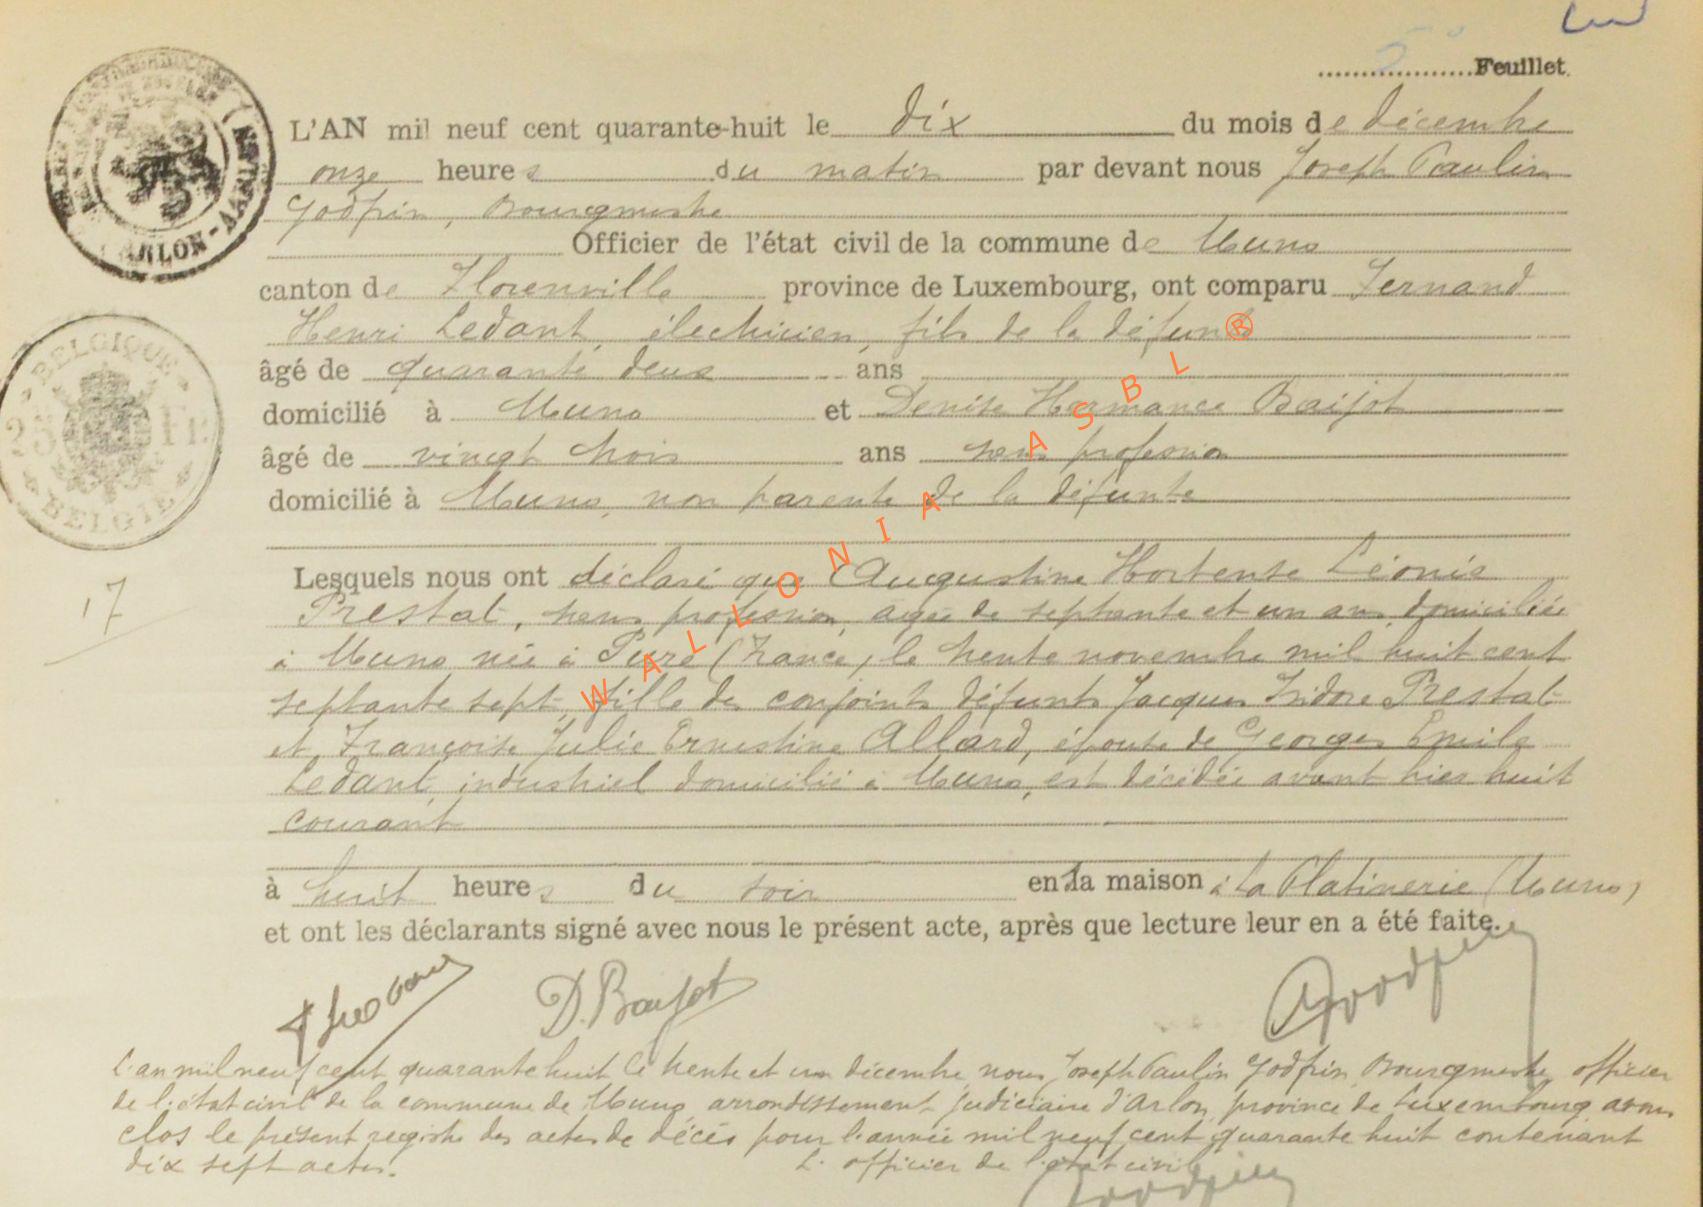 5e Feuillet.
L'AN mil neuf cent quarante-huit le dix du mois de décembre
onze heures du matin par devant nous Joseph Paulin
Godfrin, Bourgmestre
Officier de l'état civil de la commune de Muno
canton de Florenville province de Luxembourg, ont comparu Fernand
Henri Ledant, électricien, fils de la défunte
âgé de quarante deux ans
domicilié à Muno et Denise Hermance Baijot
âgé de vingt trois ans sans profession
domicilié à Muno, non parente de la défunte
Lesquels nous ont déclaré que Augustine Hortense Léonie
Prestat, sans profession, agée de septante et un ans, domiciliée
à Muno née à Puré (France) le trente novembre mil huit cent
septante sept, fille des conjoints défunts Jacques Isidore Prestat
et Françoise Julie Ernestine Allard, épouse de Georges Emile
Ledant, industriel domicilié à Muno, est décédée avant hier huit
courant
à huit heures du soir en la maison à la Platinerie (Muno)
et ont les déclarants signé avec nous le présent acte, après que lecture leur en a été faite.
D. Baijot Godfrin
L'an mil neuf cent quarante huit le trente et un décembre, nous Joseph Paulin Godfrin, Bourgmestre, officier
de l'état civil de la commune de Muno, arrondissement judiciaire d'Arlon, province de Luxembourg, avons
clos le présent registre des actes de décès pour l'année mil neuf cent quarante huit contenant
dix sept actes. L'officier de l'état civil
Godfrin
ARLON
BELGIQUE
25 FR
BELGIE
17
WALLONIA ASBL ®